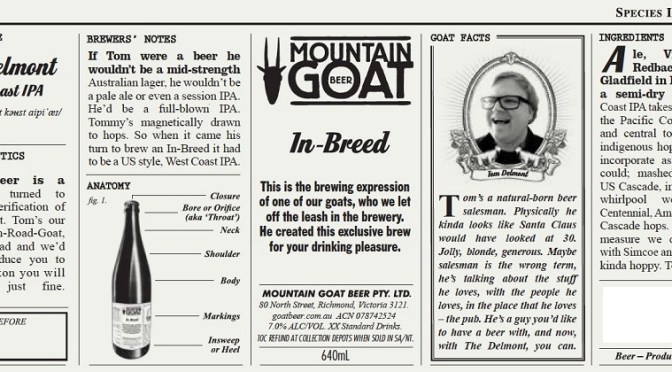 SPECIES I
elmont
ast IPA
t kɘʊst aipi 'aɪ/
TICS
eer is a
turned to
erification of
t. Tom's our
n-Road-Goat,
ad and we'd
duce you to
on you will
just fine.
EFORE
BREWERS' NOTES
If Tom were a beer he
wouldn't be a mid-strength
Australian lager, he wouldn't be
a pale ale or even a session IPA.
He'd be a full-blown IPA.
Tommy's magnetically drawn
to hops. So when it came his
turn to brew an In-Breed it had
to be a US style, West Coast IPA.
ANATOMY
fig. 1.
Closure
Bore or Orifice
(aka 'Throat')
Neck
Shoulder
Body
Markings
Insweep
or Heel
MOUNTAIN
GOAT
BEER
In-Breed
This is the brewing expression
of one of our goats, who we let
off the leash in the brewery.
He created this exclusive brew
for your drinking pleasure.
MOUNTAIN GOAT BEER PTY. LTD.
80 North Street, Richmond, Victoria 3121.
goatbeer.com.au ACN 078742524
7.0% ALC/VOL. XX Standard Drinks.
10C REFUND AT COLLECTION DEPOTS WHEN SOLD IN SA/NT.
640mL
GOAT FACTS
Tom Delmont
Tom's a natural-born beer
salesman. Physically he
kinda looks like Santa Claus
would have looked at 30.
Jolly, blonde, generous. Maybe
salesman is the wrong term,
he's talking about the stuff
he loves, with the people he
loves, in the place that he loves
– the pub. He's a guy you'd like
to have a beer with, and now,
with The Delmont, you can.
INGREDIENTS
Ale, V
Redbac
Gladfield in
a semi-dry
Coast IPA takes
the Pacific Co
and central to
indigenous hop
incorporate as
could; mashed
US Cascade, i
whirlpool w
Centennial, Am
Cascade hops.
measure we d
with Simcoe an
kinda hoppy. T
Beer – Produ